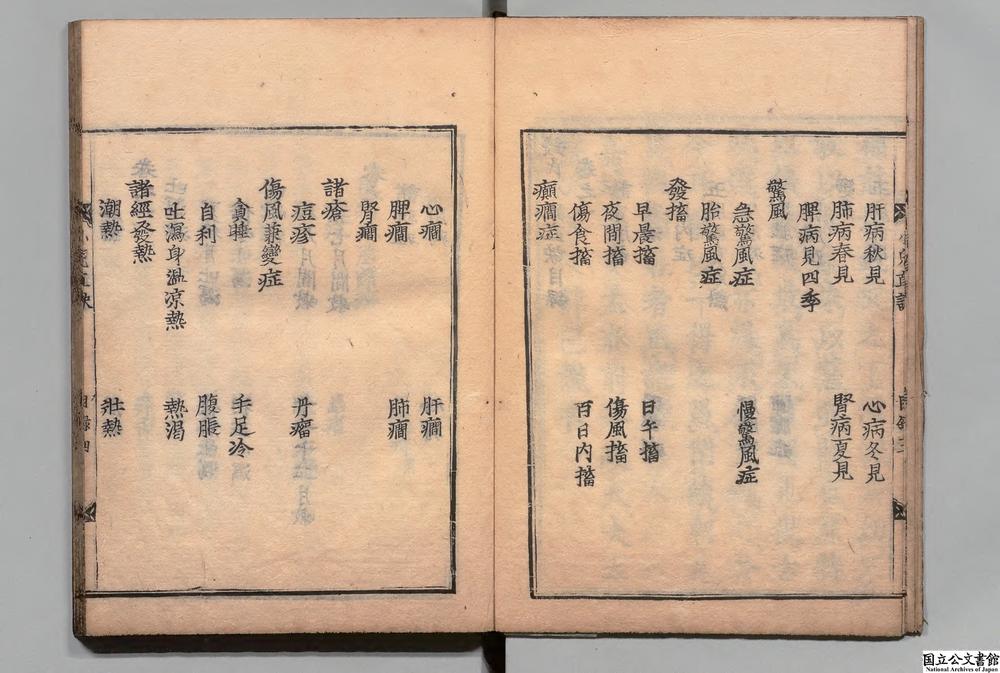 肝病秋見　心病冬見
肺病春見　腎病夏見
脾病見四季
驚風
急驚風症　慢驚風症
胎驚風症
發搐
早晨搐　日午搐
夜間搐　傷風搐
傷食搐　百日內搐
癲癇症
心癇　肝癇
脾癇　肺癇
腎癇
諸瘡
痘疹　丹瘤
傷風兼變症
貪睡　手足冷
自利　腹脹
吐瀉身溫凉熱　熱渴
諸經發熱
潮熱　壯熱
国立公文書館
National Archives of Japan